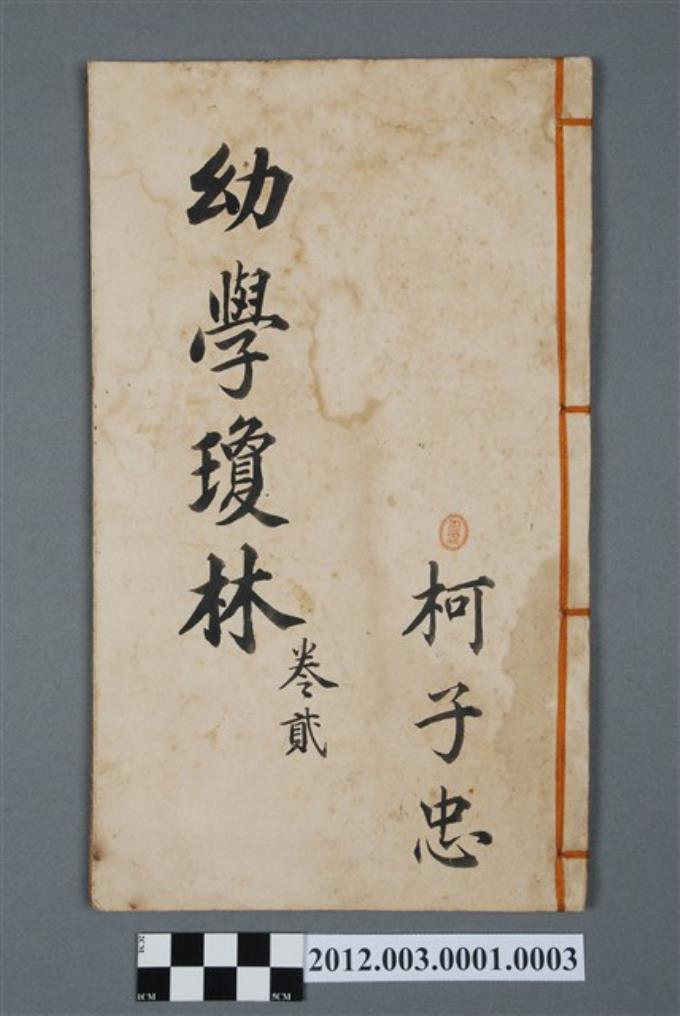 幼學瓊林
卷貳
柯子忠
2CM
1CM
5CM
2012.003.0001.0003